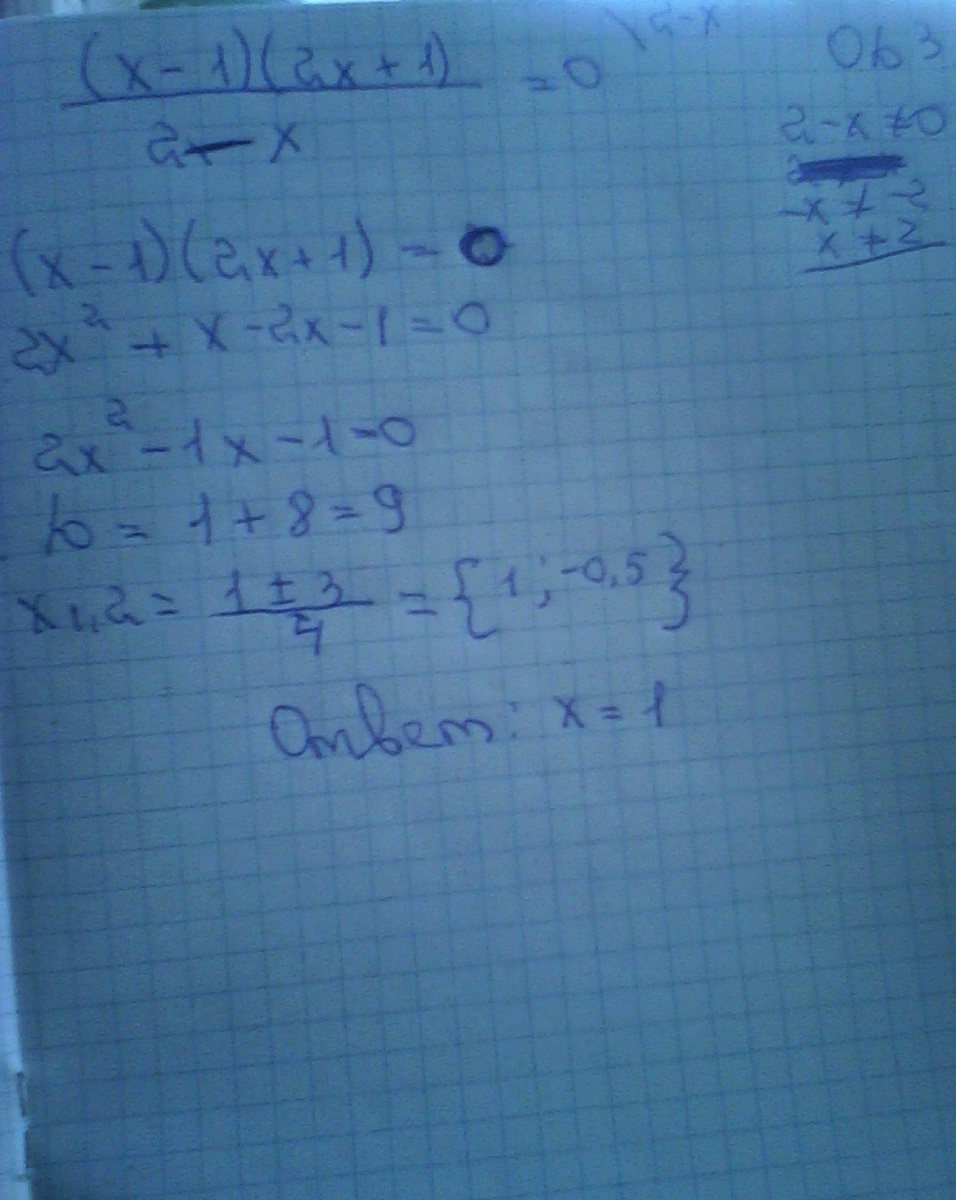 (x-1)(2x+1) = 0 \2-x
2-x
ОЬЗ
2-x≠0
-x≠-2
x≠2
(x-1)(2x+1) = 0
2x² + x-2x-1=0
2x²-1x-1=0
D = 1+8=9
x1,2= 1±3/4 = {1;-0,5}
Ответ: x=1